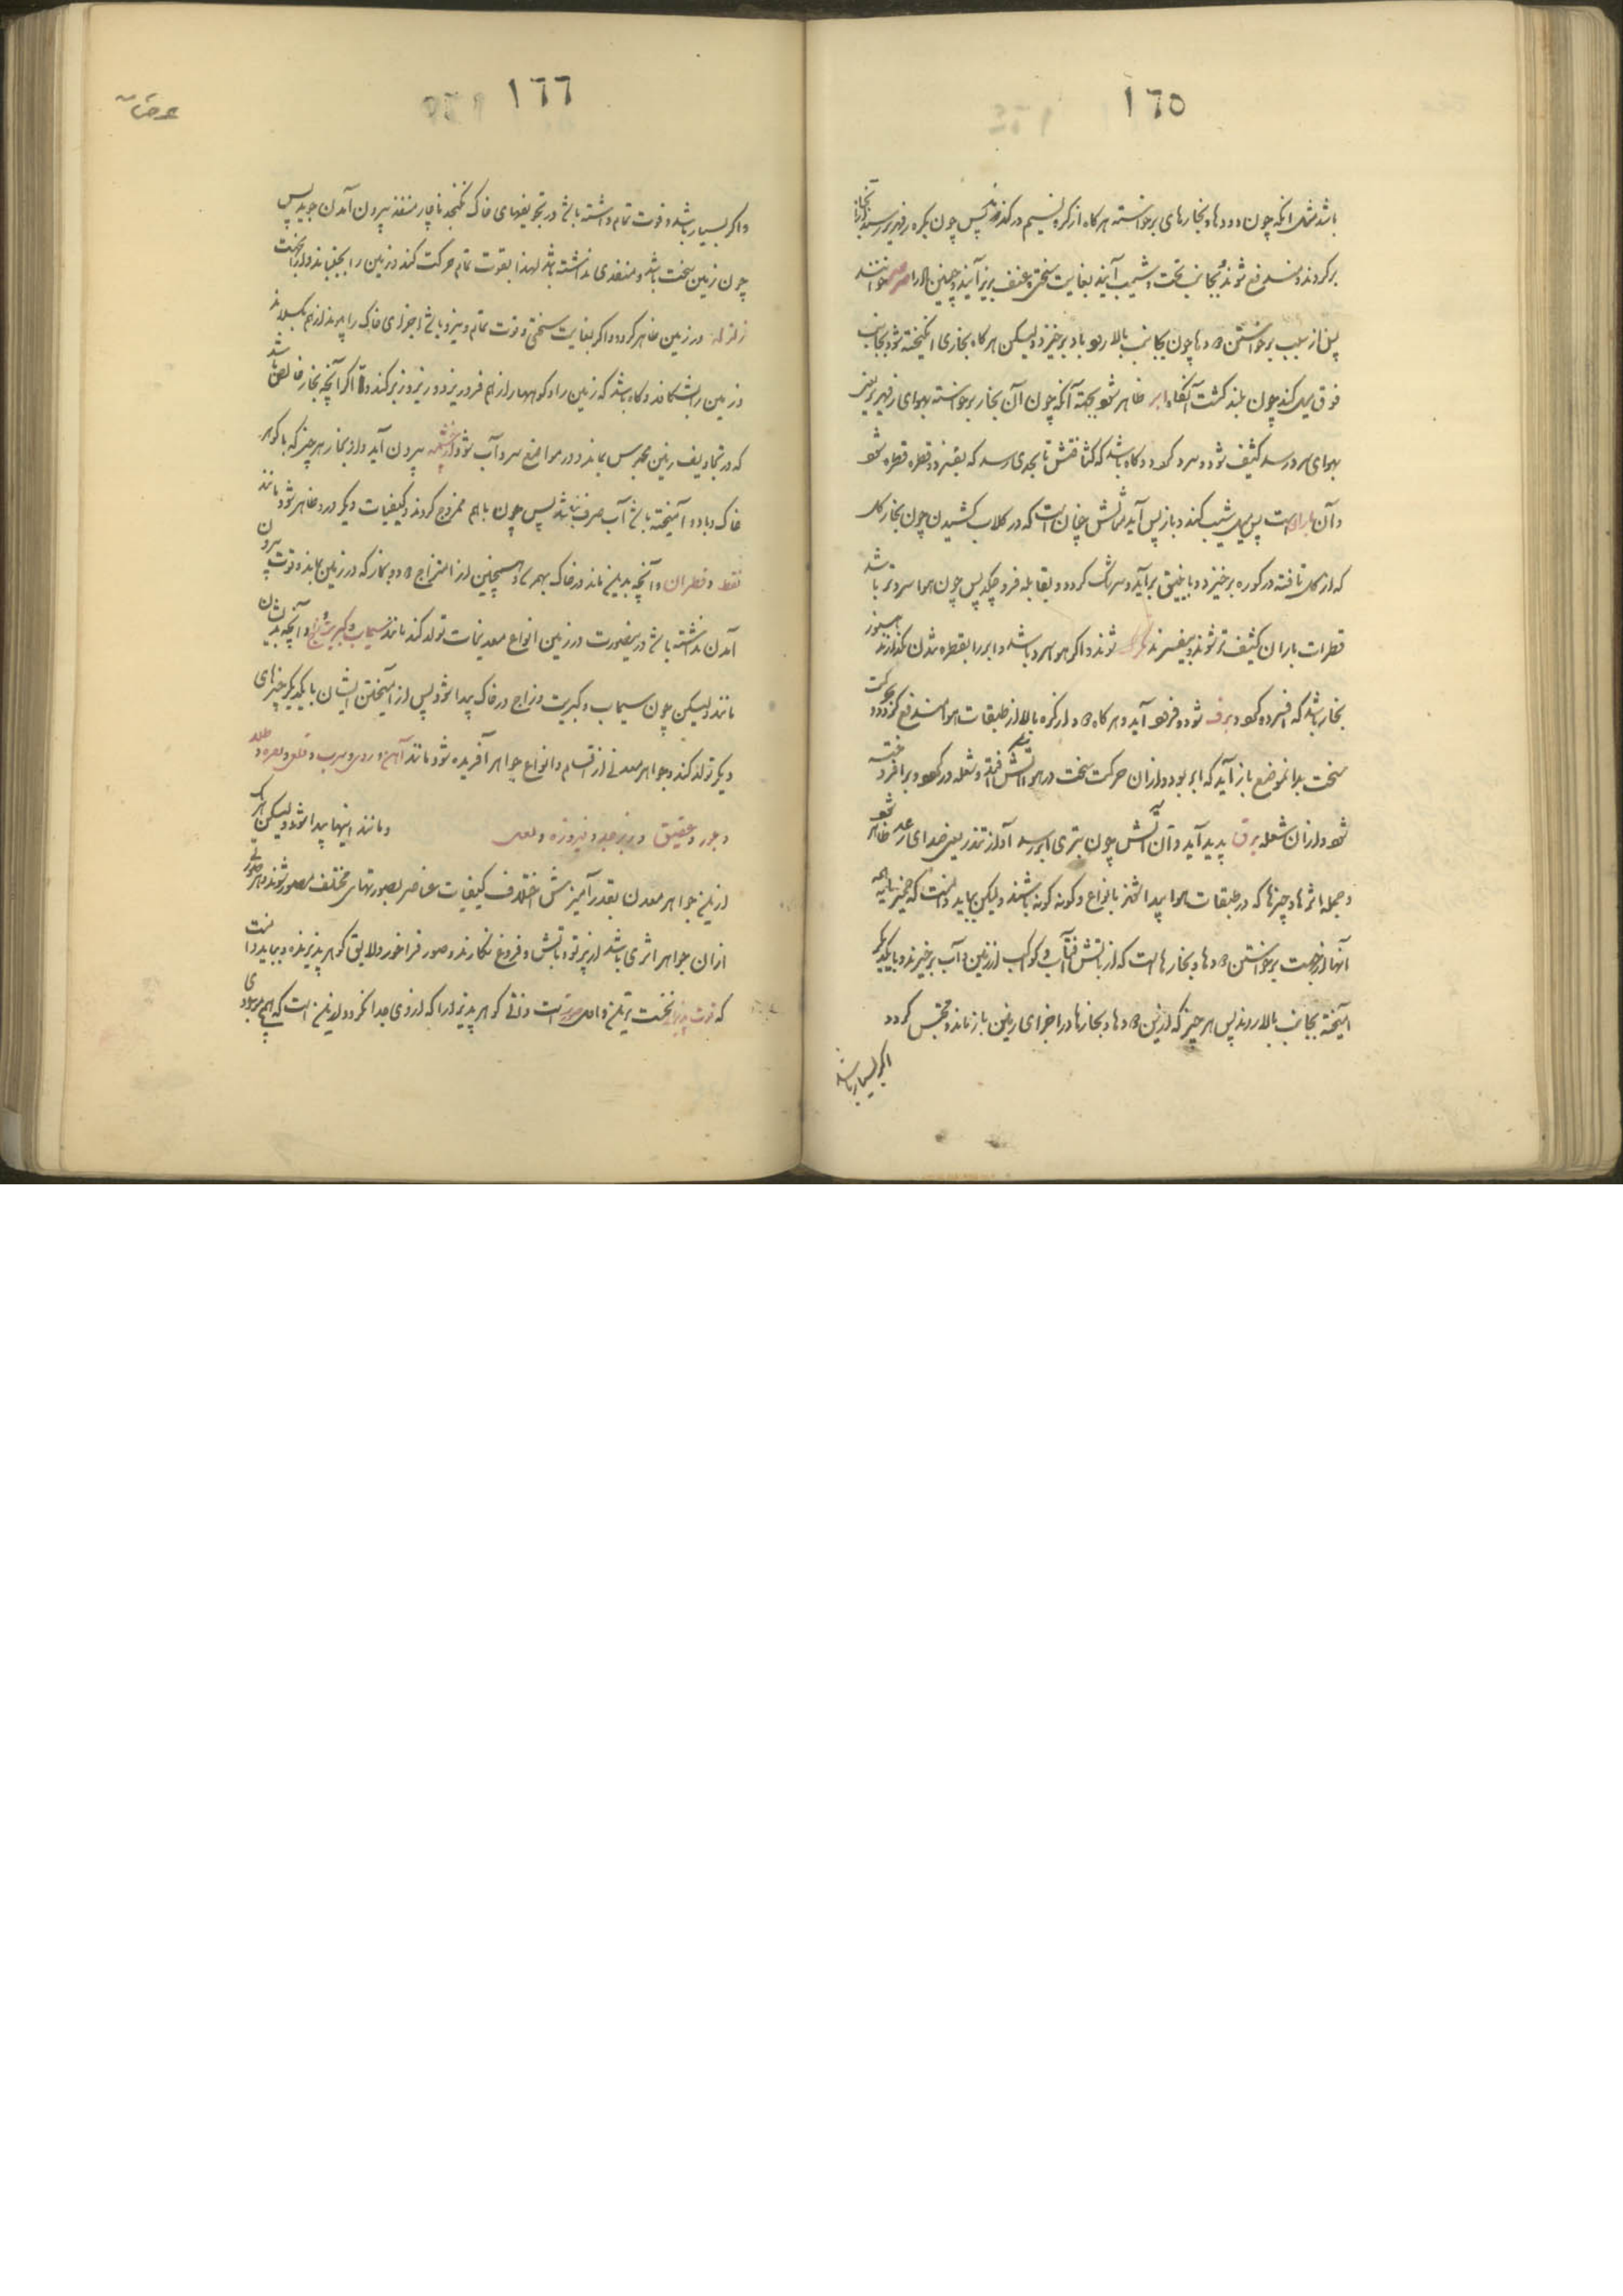 ١٦٥
باشد مثل انکه چون دودها و بخارهای برخواسته هرکاه از کره نسیم درکذرند پس چون بکره زمهریر رسند از آنجا
برکردند و مندفع شوند و بجانب تحت و شیب آیند بغایت سختی و عنف بزیر آیند و چنین باد را صرصر خوانند
پس از سبب برخواستن دودها چون بجانب بالا رود باد برخیزد ولیکن هرکاه بخاری انکیخته شود و بجانب
فوق میل کند چون بلند کشت آنکاه ابر ظاهر شود بجهة آنکه چون آن بخار برخواسته بهوای زمهریر یعنی
بهوای سرد رسد کثیف شود و سرد کردد و کاه باشد که کثافتش تا بحدی رسد که بفسرد و قطره قطره شود
و آن بارانست پس میل شیب کند و باز پس آید مثالش چنان است که در کلاب کشیدن چون بخار کل
که از کل تافته در کوره برخیزد و بانبیق برآید و سرشک کردد و بقابله فرو چکد پس چون هوا سردتر باشد
قطرات باران کثیف تر شوند و بیفسرند تکرک شوند و اکر هوا سرد باشد و ابر را بقطره شدن نکذارند هنوز
بخار باشد که افسرده کردد و برف شود و فرود آید و هرکاه دود از کره بالا از طبقات هوا مندفع کردد و حرکت
سخت بدانموضع باز آید که ابر بود و از آن حرکت سخت در هوا آتش افتد و شعله در کیرد و برافروخته
شود و از ان شعله برق پدید آید و آن آتش چون بتری ابر رسد آواز تندر یعنی صدای رعد ظاهر شود
و جمله اثرها و چیزها که در طبقات هوا پیدا شوند بانواع و کونه کونه باشند ولیکن بباید دانست که خمیرمایه همه
آنها از جهت برخواستن دودها و بخارها است که از تابش آفتاب و کواکب از زمین و آب برخیزند و با یکدیکر
آمیخته بجانب بالا روند پس هر چیز که از این دودها و بخارها در اجزای زمین باز ماند و محتبس کردد
اکر بسیار باشد
١٦٦
واکر بسیار باشد و قوت تمام داشته باشد در تجویفهای خاک نکنجد ناچار منفذ بیرون آمدن جوید پس
چون زمین سخت باشد و منفذی نداشته باشد لهذا بقوت تمام حرکت کند و زمین را بجنباند و از آنجهت
زلزله در زمین ظاهر کردد و اکر بغایت سختی و قوت تمام و نیرو باشد اجزای خاک را پیوند از هم بکسلاند
و زمین را بشکافد و کاه باشد که زمین را و کوهها را از هم فرو ریزد و زیر و زبر کند و اما اکر آنچه بخار خالص باشد
که در تجاویف زمین محبوس بماند و در مواضع سرد آب شود و از چشمه بیرون آید و از بخار هر چیز که با کوهر
خاک و با دود آمیخته باشد آب صرف نباشد پس چون با هم ممزوج کردند و کیفیات دیکر در و ظاهر شود مانند
نفط و قطران و آنچه بدین ماند در خاک بهم رسد و همچنین از امتزاج دود و بخار که در زمین بماند و قوت بیرون
آمدن نداشته باشد در ینصورت در زمین انواع معدنیات تولد کند مانند سیماب و کبریت و زاج و آنچه بدیشان
مانند ولیکن چون سیماب و کبریت و زاج در خاک پیدا شود پس از آمیختن ایشان با یکدیکر چیزهای
دیکر تولد کند و جواهر معدنی از اقسام و انواع جواهر آفریده شود مانند آهن و روی و سرب و قلعی و نقره و طلا
و عقیق و زبرجد و فیروزه و لعل و مانند اینها پیدا شود ولیکن هر یک
از این جواهر معدن بقدر آمیزش اختلاف کیفیات عناصر بصورتهای مختلف مصور شوند و هر صورتی
از ان جواهر اثری باشد از پرتو و تابش و فروغ نکارنده صور فراخور و لایق کوهر پذیرنده و بباید دانست
که قوت پذیرا نخست ترین و اصل صورتست و ذات کوهر پذیر را که از وی جدا نکردد و از این است که